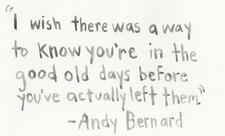 "I wish there was a way
to know you're in the
good old days before
you've actually left them."
-Andy Bernard